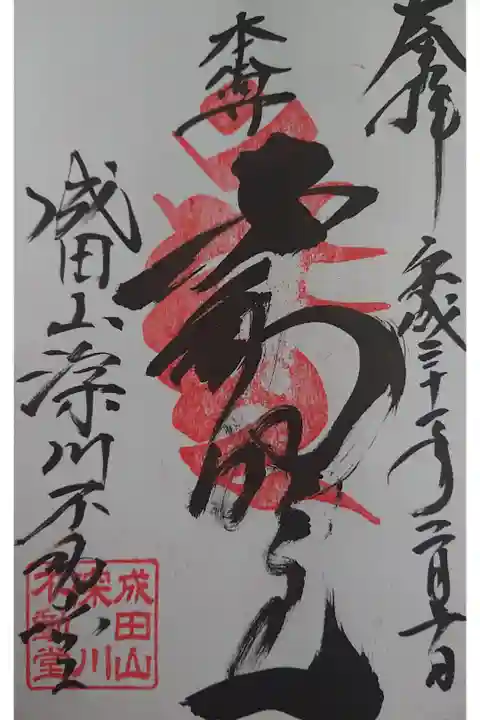 奉拝 平成三十一年二月 日
本尊
不動明王
成田山深川不動堂
成田山
深川
不動堂